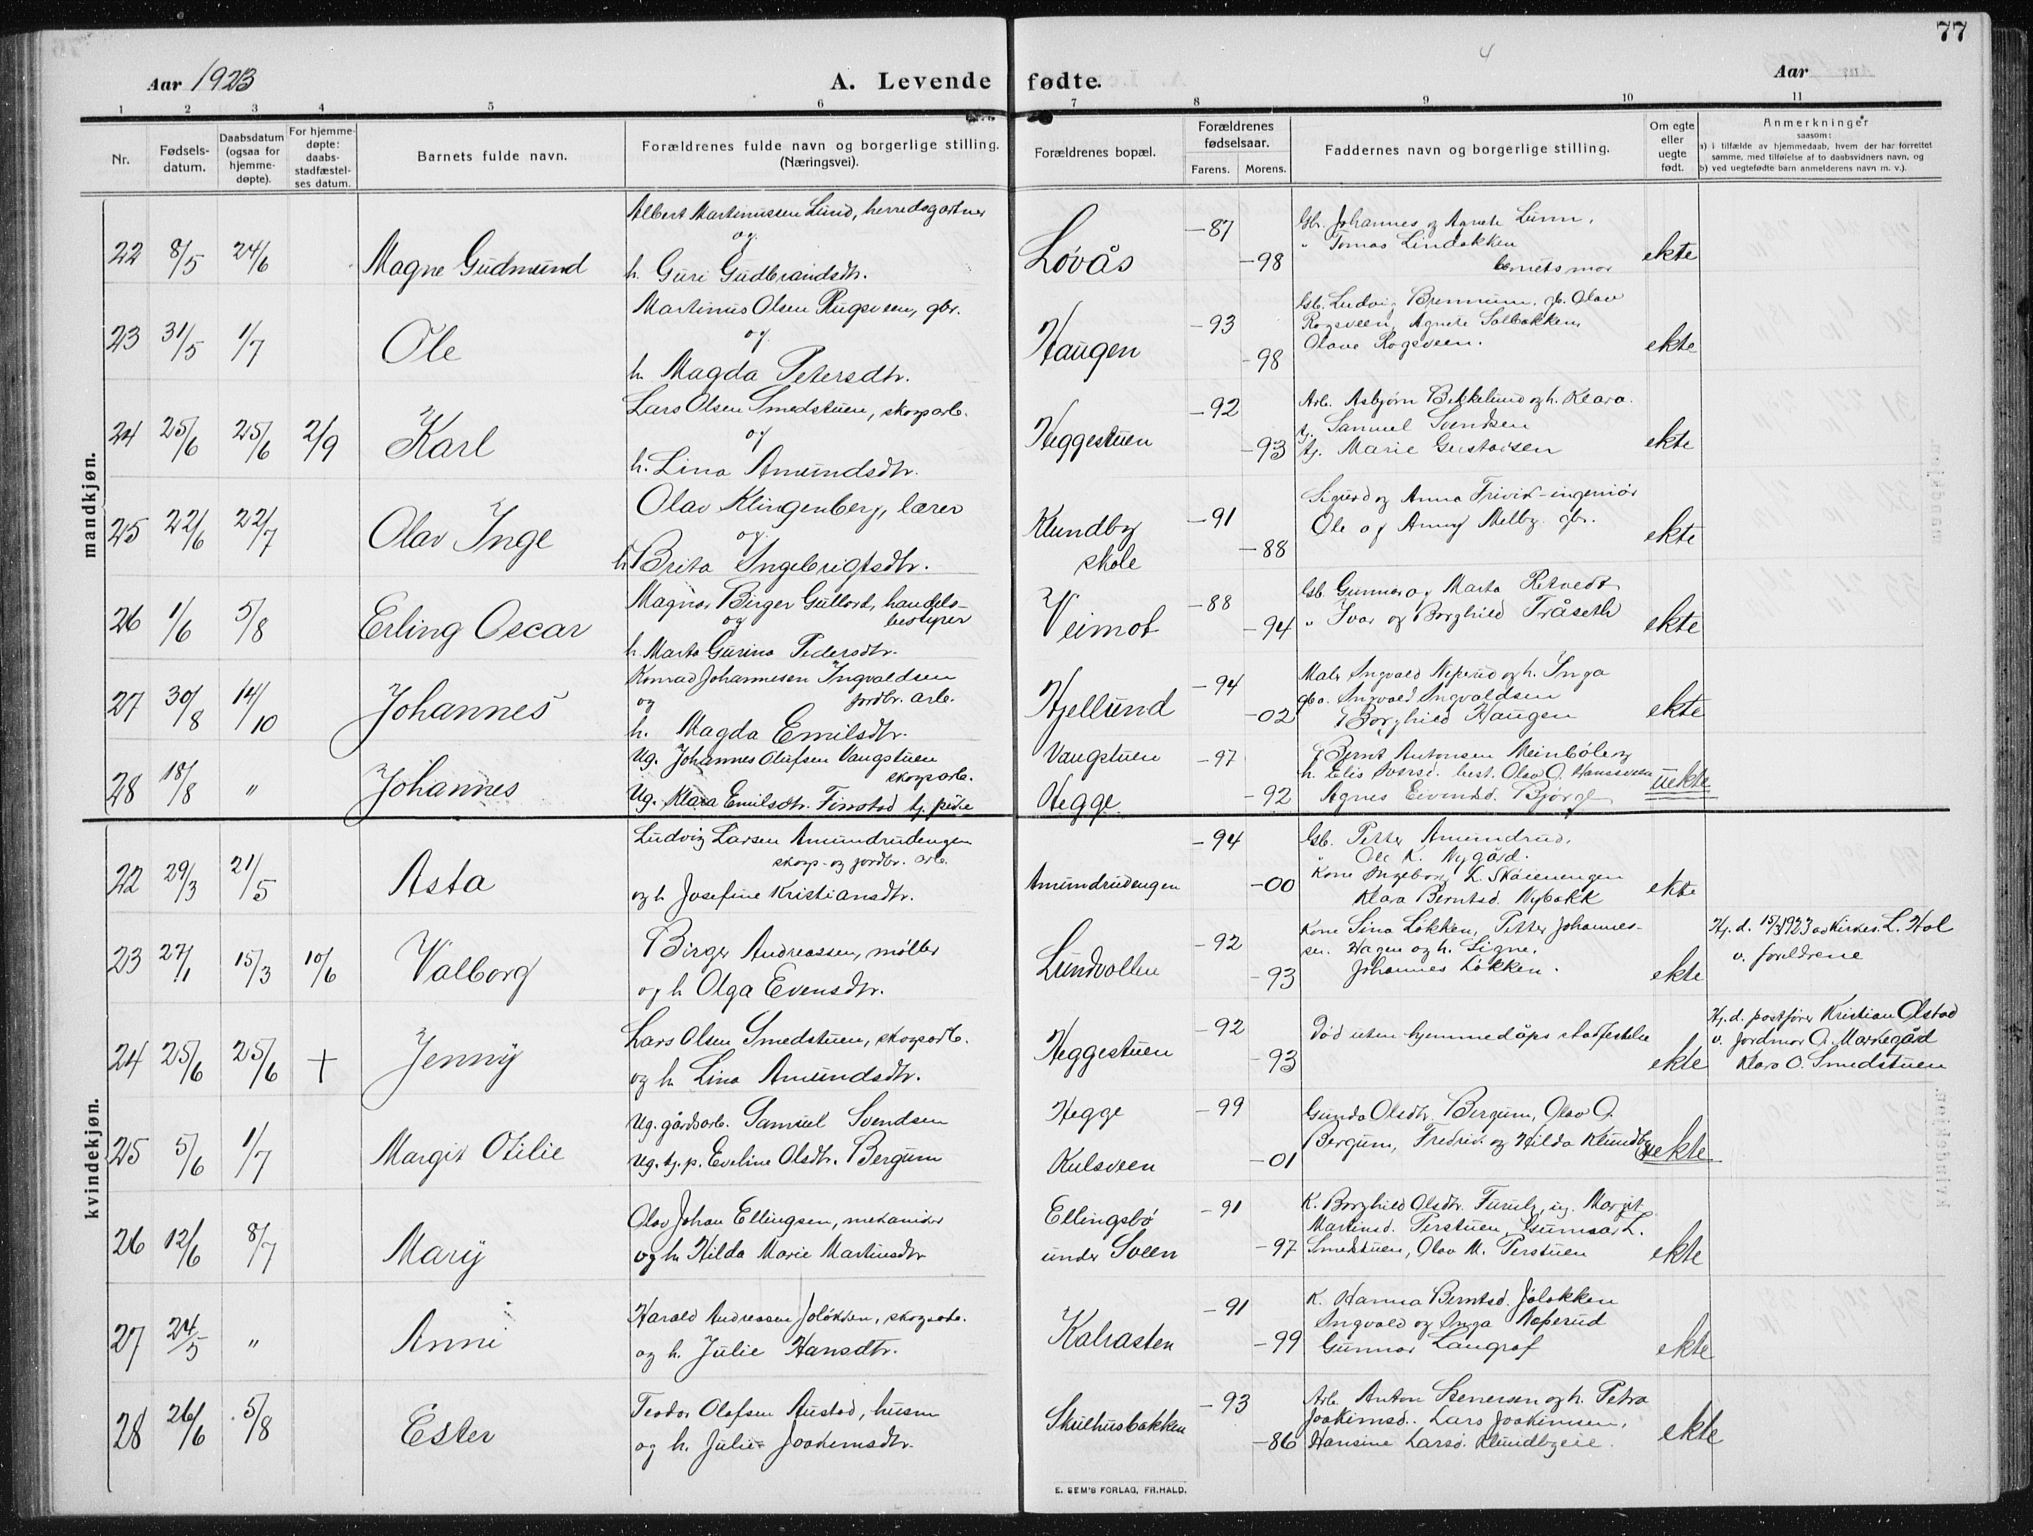 77
4
Aar 1923 A. Levende fødte. Aar
1 2 3 4 5 6 7 8 9 10 11
Nr. Fødsels-datum. Daabsdatum (ogsaa for hjemme-døpte). For hjemme-døpte: daabs-stadfæstel-ses datum. Barnets fulde navn. Forældrenes fulde navn og borgerlige stilling. (Næringsvei). Forældrenes bopæl. Forældrenes fødselsaar. Farens. Morens. Faddernes navn og borgerlige stilling. Om egte eller uegte født. Anmerkninger saasom: a) i tilfælde av hjemmedaab, hvem der har forrettet samme, med tilføielse af to daabsvidners navn, og b) ved uegtefødte barn anmelderens navn m. v.).
mandkjøn.
Albert Martinussen Lund, herredsgartner
22 8/5 24/6 Magne Gudmund og Løvås -87 Gb. Johannes og Agnete Lunn,
" Tomas Lindokken
h. Guri Gudbrandsdtr. -98 barnets mor ekte
Martinus Olsen Rugsveen, gbr. Gb. Ludvig Brennum, gb. Olav
23 31/5 1/7 Ole og Haugen -93 Rogsveen, Agnete Solbakken,
h. Magda Petersdtr. -98 Olave Rogsveen. ekte
Lars Olsen Smedstuen, skogsarb. Arb. Asbjørn Bekkelund og h. Klara.
24 25/6 25/6 2/9 Karl og Heggestuen -92 tj. Samuel Svendsen
h. Lina Amundsdtr. -93 tj. Marie Gustavsen ekte
Olav Klingenberg, lærer Sigurd og Anna - ingeniør
25 22/6 22/7 Olav Inge og Klundby skole -91 Ole og Anny Melby. gbr.
h. Brita Ingebrigtsdtr. -88 ekte
Magnus Birger Gullord, handels-bestyrer Gb. Gunnar og Marta
26 1/6 5/8 Erling Oscar og Veimot -88 " Ivar og Borghild Tråseth
h. Marta Gurina Pedersdtr. -94 ekte
Konrad Johannesen Ingvaldsen Mal. Ingvald Neperud og h. Inga
27 30/8 14/10 Johannes og jordbr. arb. Hjellund -94 Ingvald Ingvaldsen
h. Magda Emilsdtr. -02 Borghild Haugen ekte
Ug. Johannes Olufsen Vangstuen Vangstuen -97 Bernt Antonsen
28 18/8 " Johannes skogsarb. h. Elis Iversd. best. Olav O. Hansveen
Ug. Klara Emilsdtr. Finstad tj. pike Hegge -92 Agnes Eivindsd. Bjørge uekte
kvindekjøn.
Ludvig Larsen Amundrudengen -94 Gb. Petter Amundrud,
22 29/3 21/5 Asta skogs- og jordbr. arb. Amundrudengen " Ole K. Nygård.
og h. Josefine Kristiansdtr. -00 Kone Ingeborg L. Skoienengen
Klara Berntsd. Nybakk ekte
23 27/1 15/3 10/6 Valborg Birger Andreassen, møller Lundvollen -92 Kone Lina Løkken, Petter Johannes-
sen. Hagen og h. Signe, Hj. d. 15/3 1923 av kirkes. L. Hol
og h. Olga Evensdtr. -93 Johannes Løkken. ekte v. foreldrene
24 25/6 25/6 + Jenny Lars Olsen Smedstuen, skogsarb. Heggestuen -92 Død uten hjemmedåps stadfestelse Hj. d. postfører Kristian Olstad
og h. Lina Amundsdtr. -93 ekte v. Jordmor O. Marnegård
Klara O. Smedstuen
25 5/6 1/7 Margit Otilie Ug. gårdsarb. Samuel Svendsen Hegge -99 Gunda Olsdtr. Bergum, Olav O.
Ug. tj. p. Eveline Olsdtr. Bergum Kulsveen -01 Bergum, Fredrik og Hilda Klundby uekte
26 12/6 8/7 Mary Olav Johan Ellingsen, mekaniker Ellingsbø -91 K. Borghild Olsdtr. Furulz, ug. Margit
Martinsd. Perstuen, Gunnar L.
og h. Hilda Marie Martinsdtr under Sveen -97 Smedstuen, Olav M. Perstuen ekte
27 24/5 " Anni Harald Andreassen Joløkken, skogsarb. Kalrasten -91 K. Hanna Berntsd. Joløkken
Ingvald og Inga Neperud
og h. Julie Hansdtr. -99 Gunnar Langrof ekte
28 26/6 5/8 Ester Teodor Olafsen Austad, husm Skulhusbakken -93 Arb. Anton Stenersen og h. Petra
Joakimsd.. Lars Joakimsen,
og h. Julie Joakimsdtr. -86 Hansine Larsd. Klundbyeie. ekte
E. SEM'S FORLAG, FR.HALD.